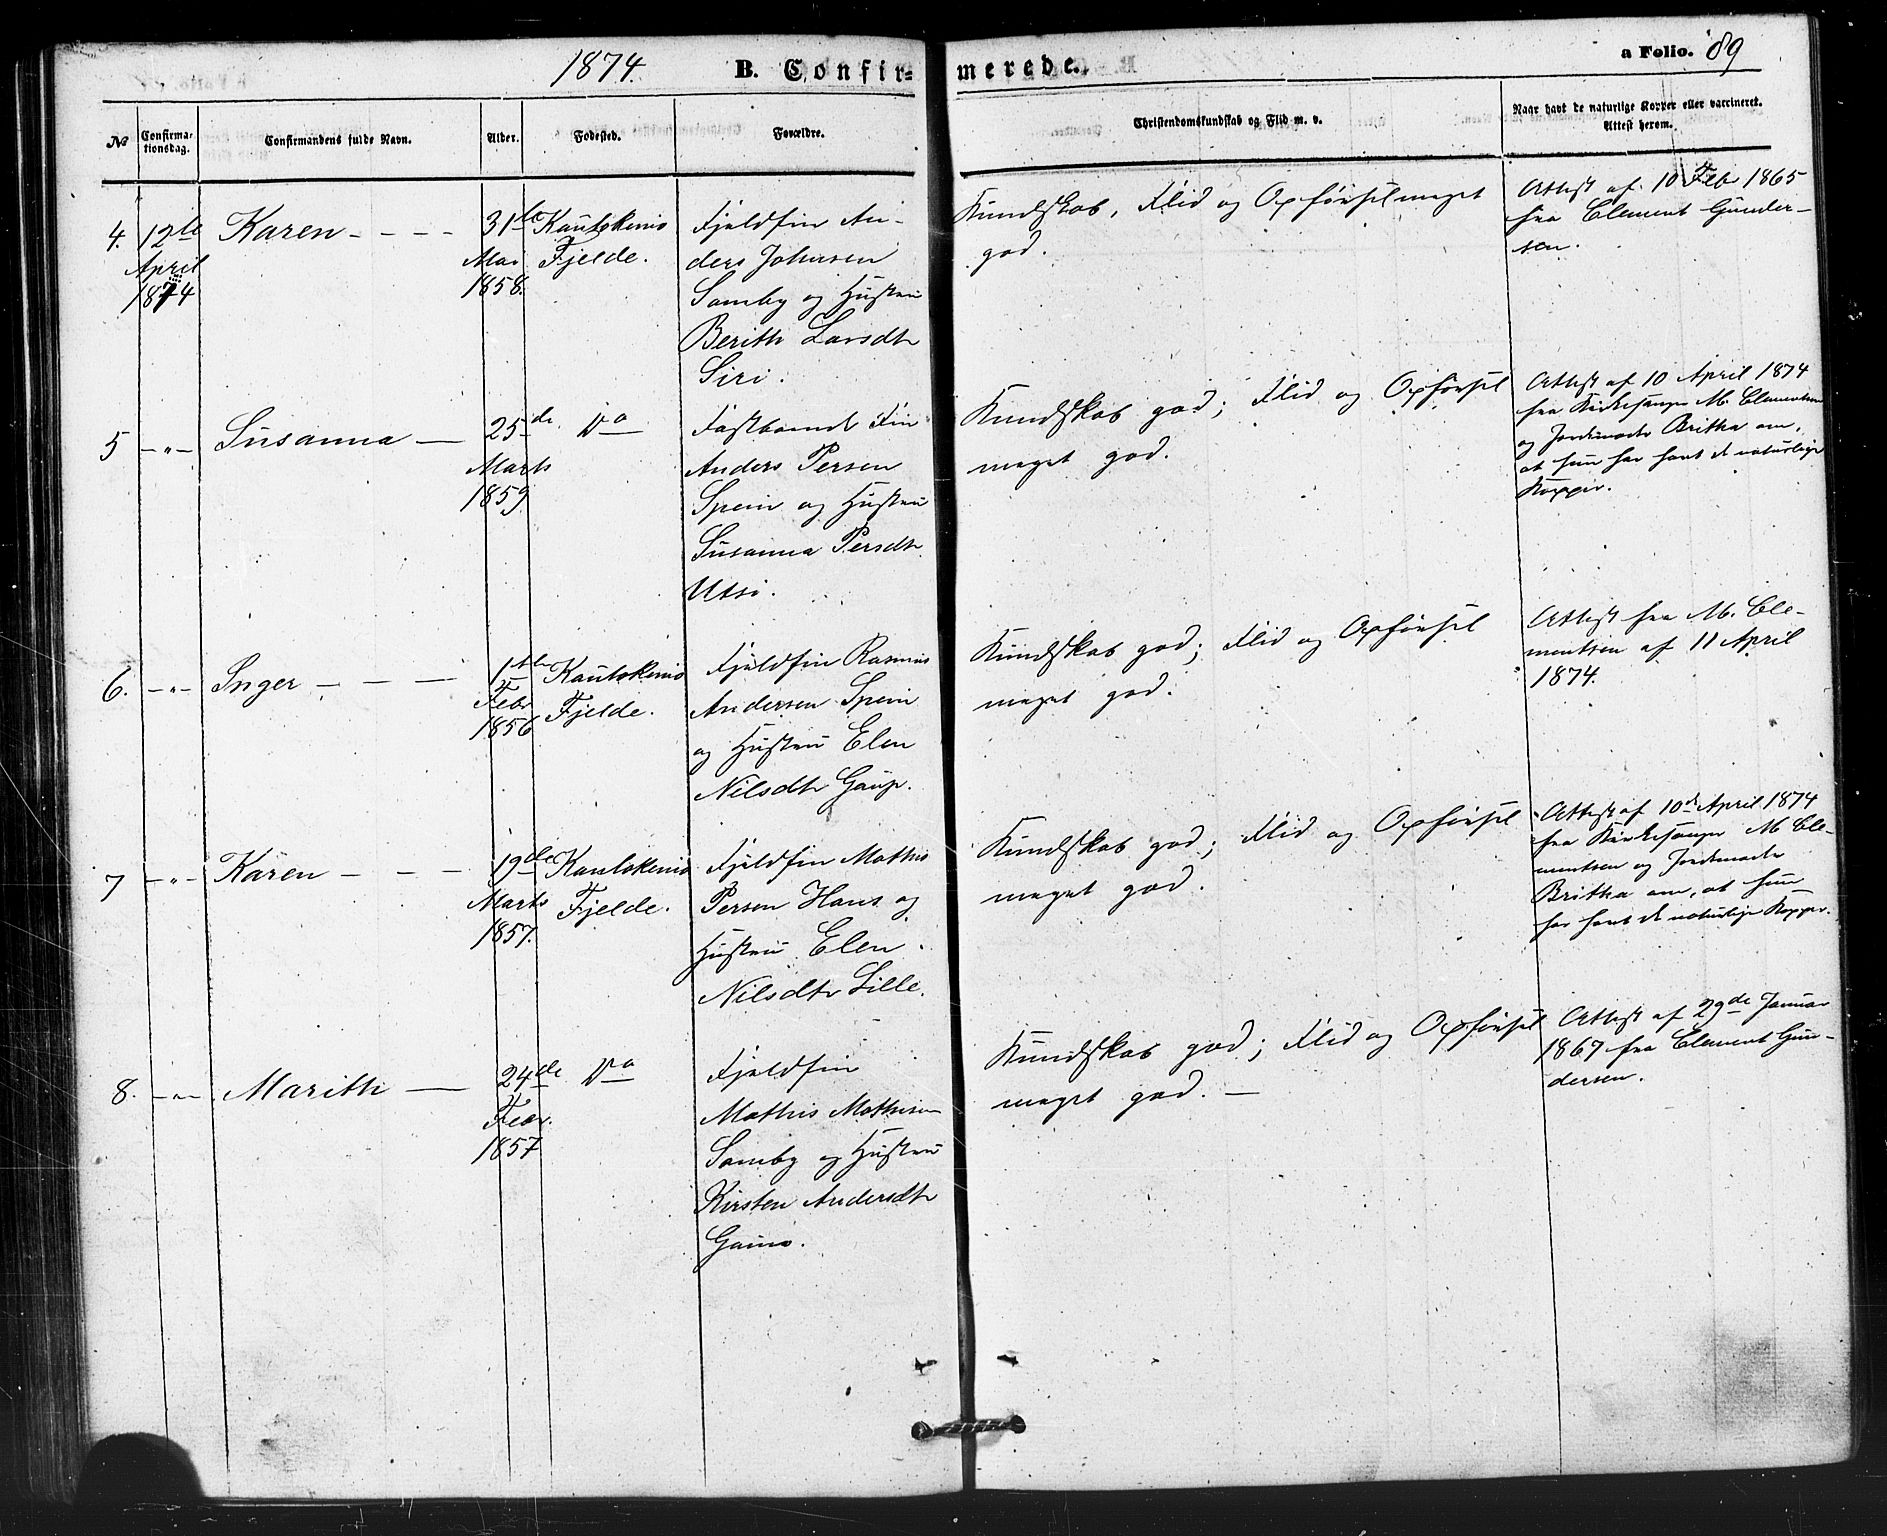 1874. B. Confir- merede. a Folio. 89
No
Confirma-
tionsdag.
Confirmandens fulde Navn.
Alder.
Fødested.
Forældre.
Christendomskundskab og Flid m. v.
Naar havt de naturlige Kopper eller vaccineret.
Attest herom.
4. 12te
April
1874
Karen - - - -
31te
Mai
1858.
Kautokeino
Fjelde.
Fjeldfin An-
ders Johnsen
Somby og Hustru
Berith Larsdtr
Siri.
Kundskab, Flid og Opførsel meget
god.
Attest af 10 Feb 1865
fra Clement Gunder-
sen.
5 - " - Susanna -
25de
Marts
1859.
Do
Fastboende Fin
Anders Persen
Spein og Hustru
Susanna Persdtr
Utsi.
Kundskab god; Flid og Opførsel
meget god.
Attest af 10 April 1874
fra Kirkesanger M. Clementsen
og Jordemoder Britha om,
at hun har havt de naturlige
Kopper.
6. - " - Inger - - -
1ste
Febr
1856
Kautokeino
Fjelde.
Fjeldfin Rasmus
Andersen Spein
og Hustru Elen
Nilsdtr Gaup.
Kundskab god; Flid og Opførsel
meget god.
Attest fra M. Cle-
mentsen af 11 April
1874.
7 - " - Karen - - -
19de
Marts
1857.
Kautokeino
Fjelde.
Fjeldfin Mathis
Persen Hans og
Hustru Elen
Nilsdtr Lille.
Kundskab god; Flid og Opførsel
meget god.
Attest af 10de April 1874
fra Kirkesanger M Cle-
mentsen og Jordemoder
Britha om, at hun
har havt de naturlige Kopper.
8. - " - Marith -
24de
Febr.
1857
Do
Fjeldfin
Mathis Mathisen
Somby og Hustru
Kirsten Andersdtr
Gaino.
Kundskab god; Flid og Opførsel
meget god. -
Attest af 29de Januar
1867 fra Clement Gun-
dersen.